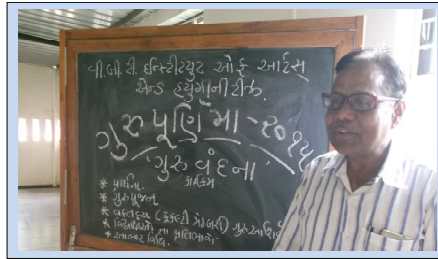 વી.બી.ટી. ઈન્સ્ટીટયુટ ઓફ આર્ટસ્
એન્ડ હયુમાનીટીઝ.
ગુરુપૂર્ણિમા - ૨૦૧૫
ગુરુવંદના
કાર્યક્રમ
* પ્રાર્થના.
* ગુરુપૂજન
* વક્તવ્ય
* વિદ્યાર્થીઓ ના પ્રતિભાવો.
* આભાર વિધિ.